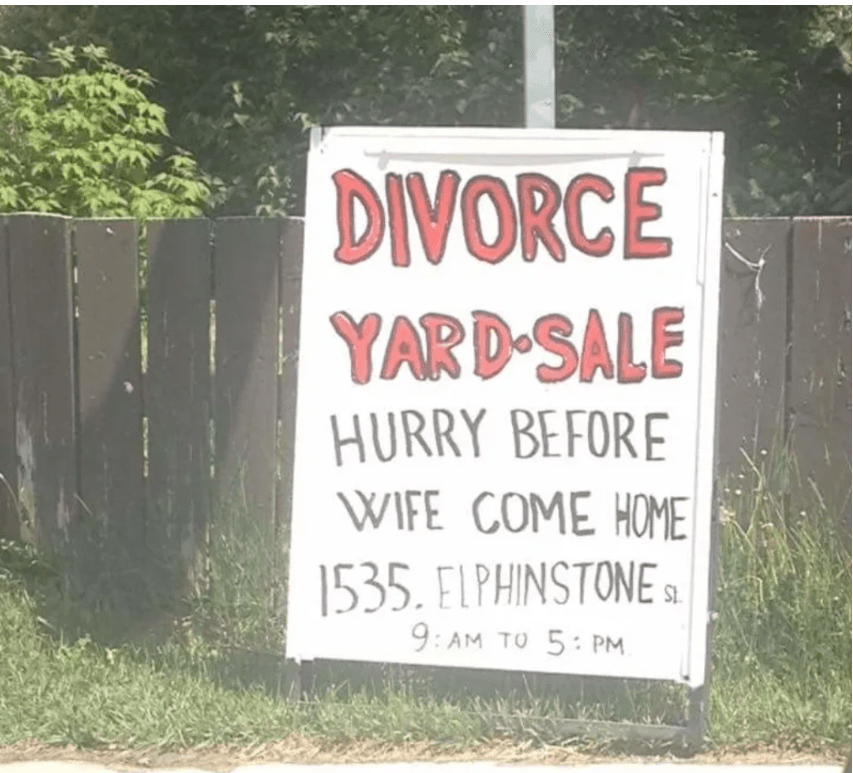 DIVORCE
YARD-SALE
HURRY BEFORE
WIFE COME HOME
1535. ELPHINSTONE ST.
9:AM TO 5:PM